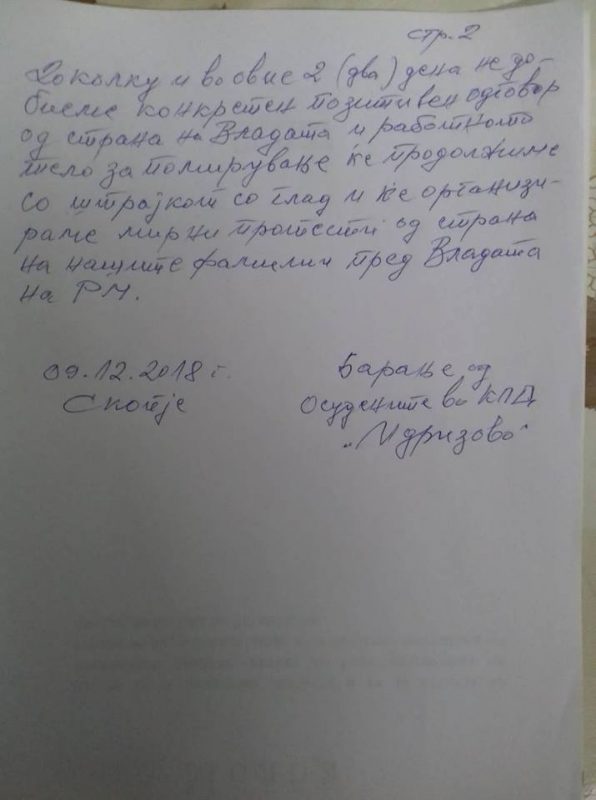 стр.2
Доколку и во овие 2 (два) дена не до-
биеме конкретен позитивен одговор
од страна на Владата и работното
тело за помирување ќе продолжиме
со штрајкот со глад и ќе организи-
раме мирни протести од страна
на нашите фамилии пред Владата
на РМ.
09.12.2018 г.
Скопје
Барање од
Осудените во КПД
„Идризово“